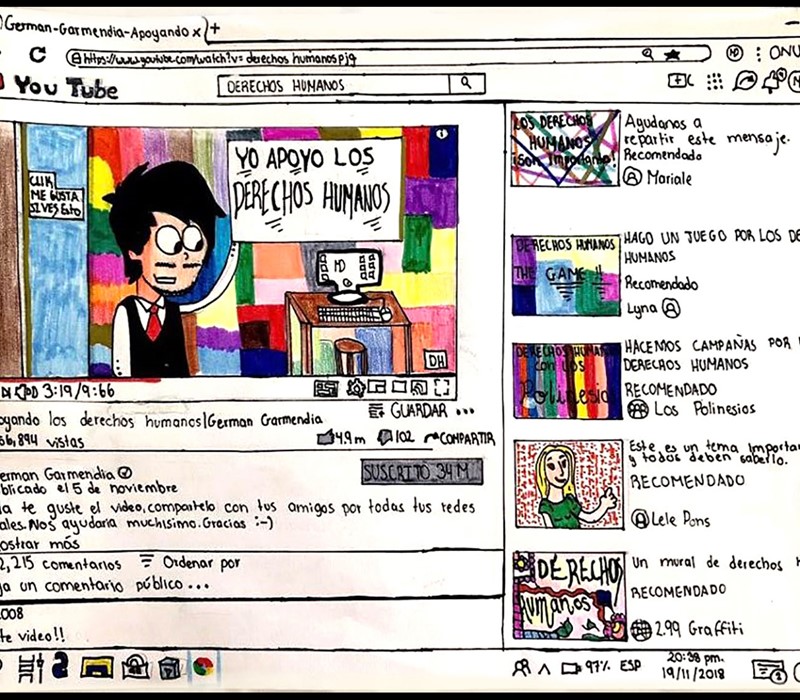 German-Garmendia-Apoyando x +
https://www.youtube.com/watch?v=derechos humanospjg
ONU
You Tube
DERECHOS HUMANOS
CLIK
ME GUSTA
SI VES Esto
YO APOYO LOS
DERECHOS HUMANOS
HD
DH
3:19/9:66
oyando los derechos humanos|German Garmendia
GUARDAR ...
56,894 vistas
4.9m 102 COMPARTIR
erman Garmendia
blicado el 5 de noviembre
SUSCRITO 34 M
la te guste el video, compartelo con tus amigos por todas tus redes
ales. Nos ayudaria muchisimo. Gracias :-)
ostrar más
2,215 comentarios Ordenar por
ga un comentario público ...
2008
te video!!
LOS DERECHOS
HUMANOS
¡son Importante!
Ayudanos a
repartir este mensaje.
Recomendado
Mariale
DERECHOS HUMANOS
THE GAME !!
HAGO UN JUEGO POR LOS DE
HUMANOS
Recomendado
Lyna
DERECHOS HUMANOS
con los
Polinesio
HACEMOS CAMPAÑAS POR
DERECHOS HUMANOS
RECOMENDADO
Los Polinesios
Este es un tema Importan
y todos deben saberlo.
RECOMENDADO
Lele Pons
DERECHOS
humanos
Un mural de derechos h
RECOMENDADO
2.99 Graffiti
97% ESP
20:38 pm.
19/11/2018